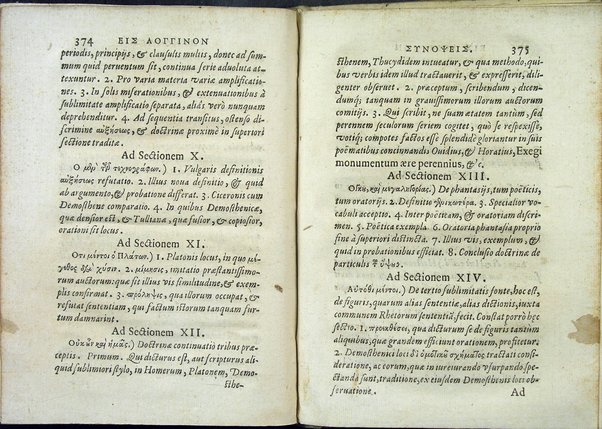 374 ΕΙΣ ΛΟΓΓΙΝΟΝ
periodis, principijs, & clausulis multis, donec ad sum-
mum quid perventum sit, continua serie advoluta at-
texuntur. 2. Pro varia materia variæ amplificatio-
nes. 3. In solis miserationibus, & extenuationibus à
sublimitate amplificatio separata, aliàs verò nunquam
deprehenditur. 4. Ad sequentia transitus, ostenso di-
scrimine αὐξήσεως, & doctrinæ proximè in superiori
sectione traditæ.
Ad Sectionem X.
Ὁ μὲν τῶν τεχνογράφων.) 1. Vulgaris definitionis
αὐξήσεως refutatio. 2. Illius nova definitio, & quid
ab argumento, & probatione differat. 3. Ciceronis cum
Demosthene comparatio. 4. In quibus Demosthenica,
quæ densior est, & Tulliana, quæ fusior, & copiosior,
orationi sit locus.
Ad Sectionem XI.
Ὅτι μέντοι ὁ Πλάτων.) 1. Platonis locus, in quo μέ-
γεθος ἐξ χύσει. 2. μίμησις, imitatio præstantissimo-
rum auctorum: quæ sit illius vis similitudine, & exem-
plis confirmat. 3. πρόληψις, qua illorum occupat, &
refutat sententiam, qui factum istorum tanquam fur-
tum damnarint.
Ad Sectionem XII.
Οὐκοῦν καὶ ἡμᾶς.) Doctrinæ continuatio tribus præ-
ceptis. Primum. Qui dicturus est, aut scripturus ali-
quid sublimiori stylo, in Homerum, Platonem, Demo-
sthe-
ΣΥΝΟΨΕΙΣ. 375
sthenem, Thucydidem intueatur, & qua methodo, qui-
bus verbis idem illud tractaverit, & expresserit, dili-
genter observet. 2. præceptum, scribendum, dicen-
dumq; tanquam in gravissimorum illorum auctorum
comitijs. 3. Qui scribit, ne suam ætatem tantum, sed
perennem seculorum seriem cogitet, quò se respexisse,
votiq; compotes factos esse splendidè gloriantur in suis
poëmatibus concinnandis Ovidius, & Horatius, Exegi
monumentum ære perennius, &c.
Ad Sectionem XIII.
Ὄγκου καὶ μεγαληγορίας.) De phantasijs, tum poëticis,
tum oratorijs. 2. Definitio generatim. 3. Specialior vo-
cabuli acceptio. 4. Inter poëticam, & oratoriam discri-
men. 5. Poëtica exempla. 6. Oratoria phantasia proprio
fine à superiori distincta. 7. Illius vis, exemplum, &
quid in probationibus efficiat. 8. Conclusio doctrinæ de
particulis τοῦ ὕψους.
Ad Sectionem XIV.
Αὐτόθι μέντοι.) De tertio sublimitatis fonte, hoc est,
de figuris, quarum alias sententiæ, alias dictionis, juxta
communem Rhetorum sententiam, fecit. Constat porrò hæc
sectio. 1. προεκθέσει, qua dicturum se de figuris tantum
aliquibus, quæ grandem efficiunt orationem, profitetur.
2. Demosthenici loci διὰ ὀμοτικοῦ σχήματος tractati consi-
deratione, ac eorum, quæ in jurejurando usurpando spe-
ctanda sunt, traditione, ex eisdem Demosthenis loci ob-
servatione.
Ad